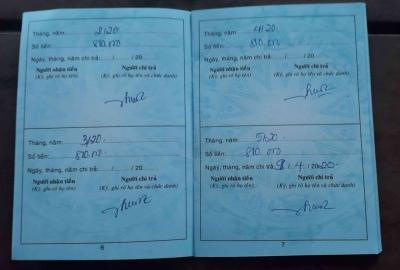 Tháng, năm: 2/20
Số tiền: 810.000
Ngày, tháng, năm chi trả: / /20
Người nhận tiền Người chi trả
(Ký, ghi rõ họ tên) (Ký, ghi rõ họ tên và chức danh)
Tháng, năm: 3/20
Số tiền: 810.000
Ngày, tháng, năm chi trả: / /20
Người nhận tiền Người chi trả
(Ký, ghi rõ họ tên) (Ký, ghi rõ họ tên và chức danh)
6
Tháng, năm 4/20
Số tiền: 810.000
Ngày, tháng, năm chi trả: / /20
Người nhận tiền Người chi trả
(Ký, ghi rõ họ tên) (Ký, ghi rõ họ tên và chức danh)
Tháng, năm: 5/20
Số tiền: 810.000
Ngày, tháng, năm chi trả: /4/2020
Người nhận tiền Người chi trả
(Ký, ghi rõ họ tên) (Ký, ghi rõ họ tên và chức danh)
7